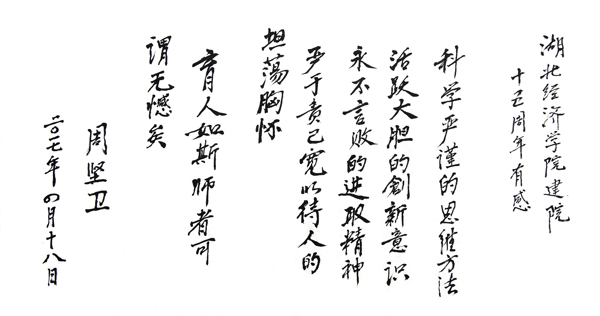 湖北经济学院建院
十五周年有感
科学严谨的思维方法
活跃大胆的创新意识
永不言败的进取精神
严于责己宽以待人的
坦荡胸怀
育人如斯师者可
谓无憾矣
周坚卫
二〇一七年四月十八日